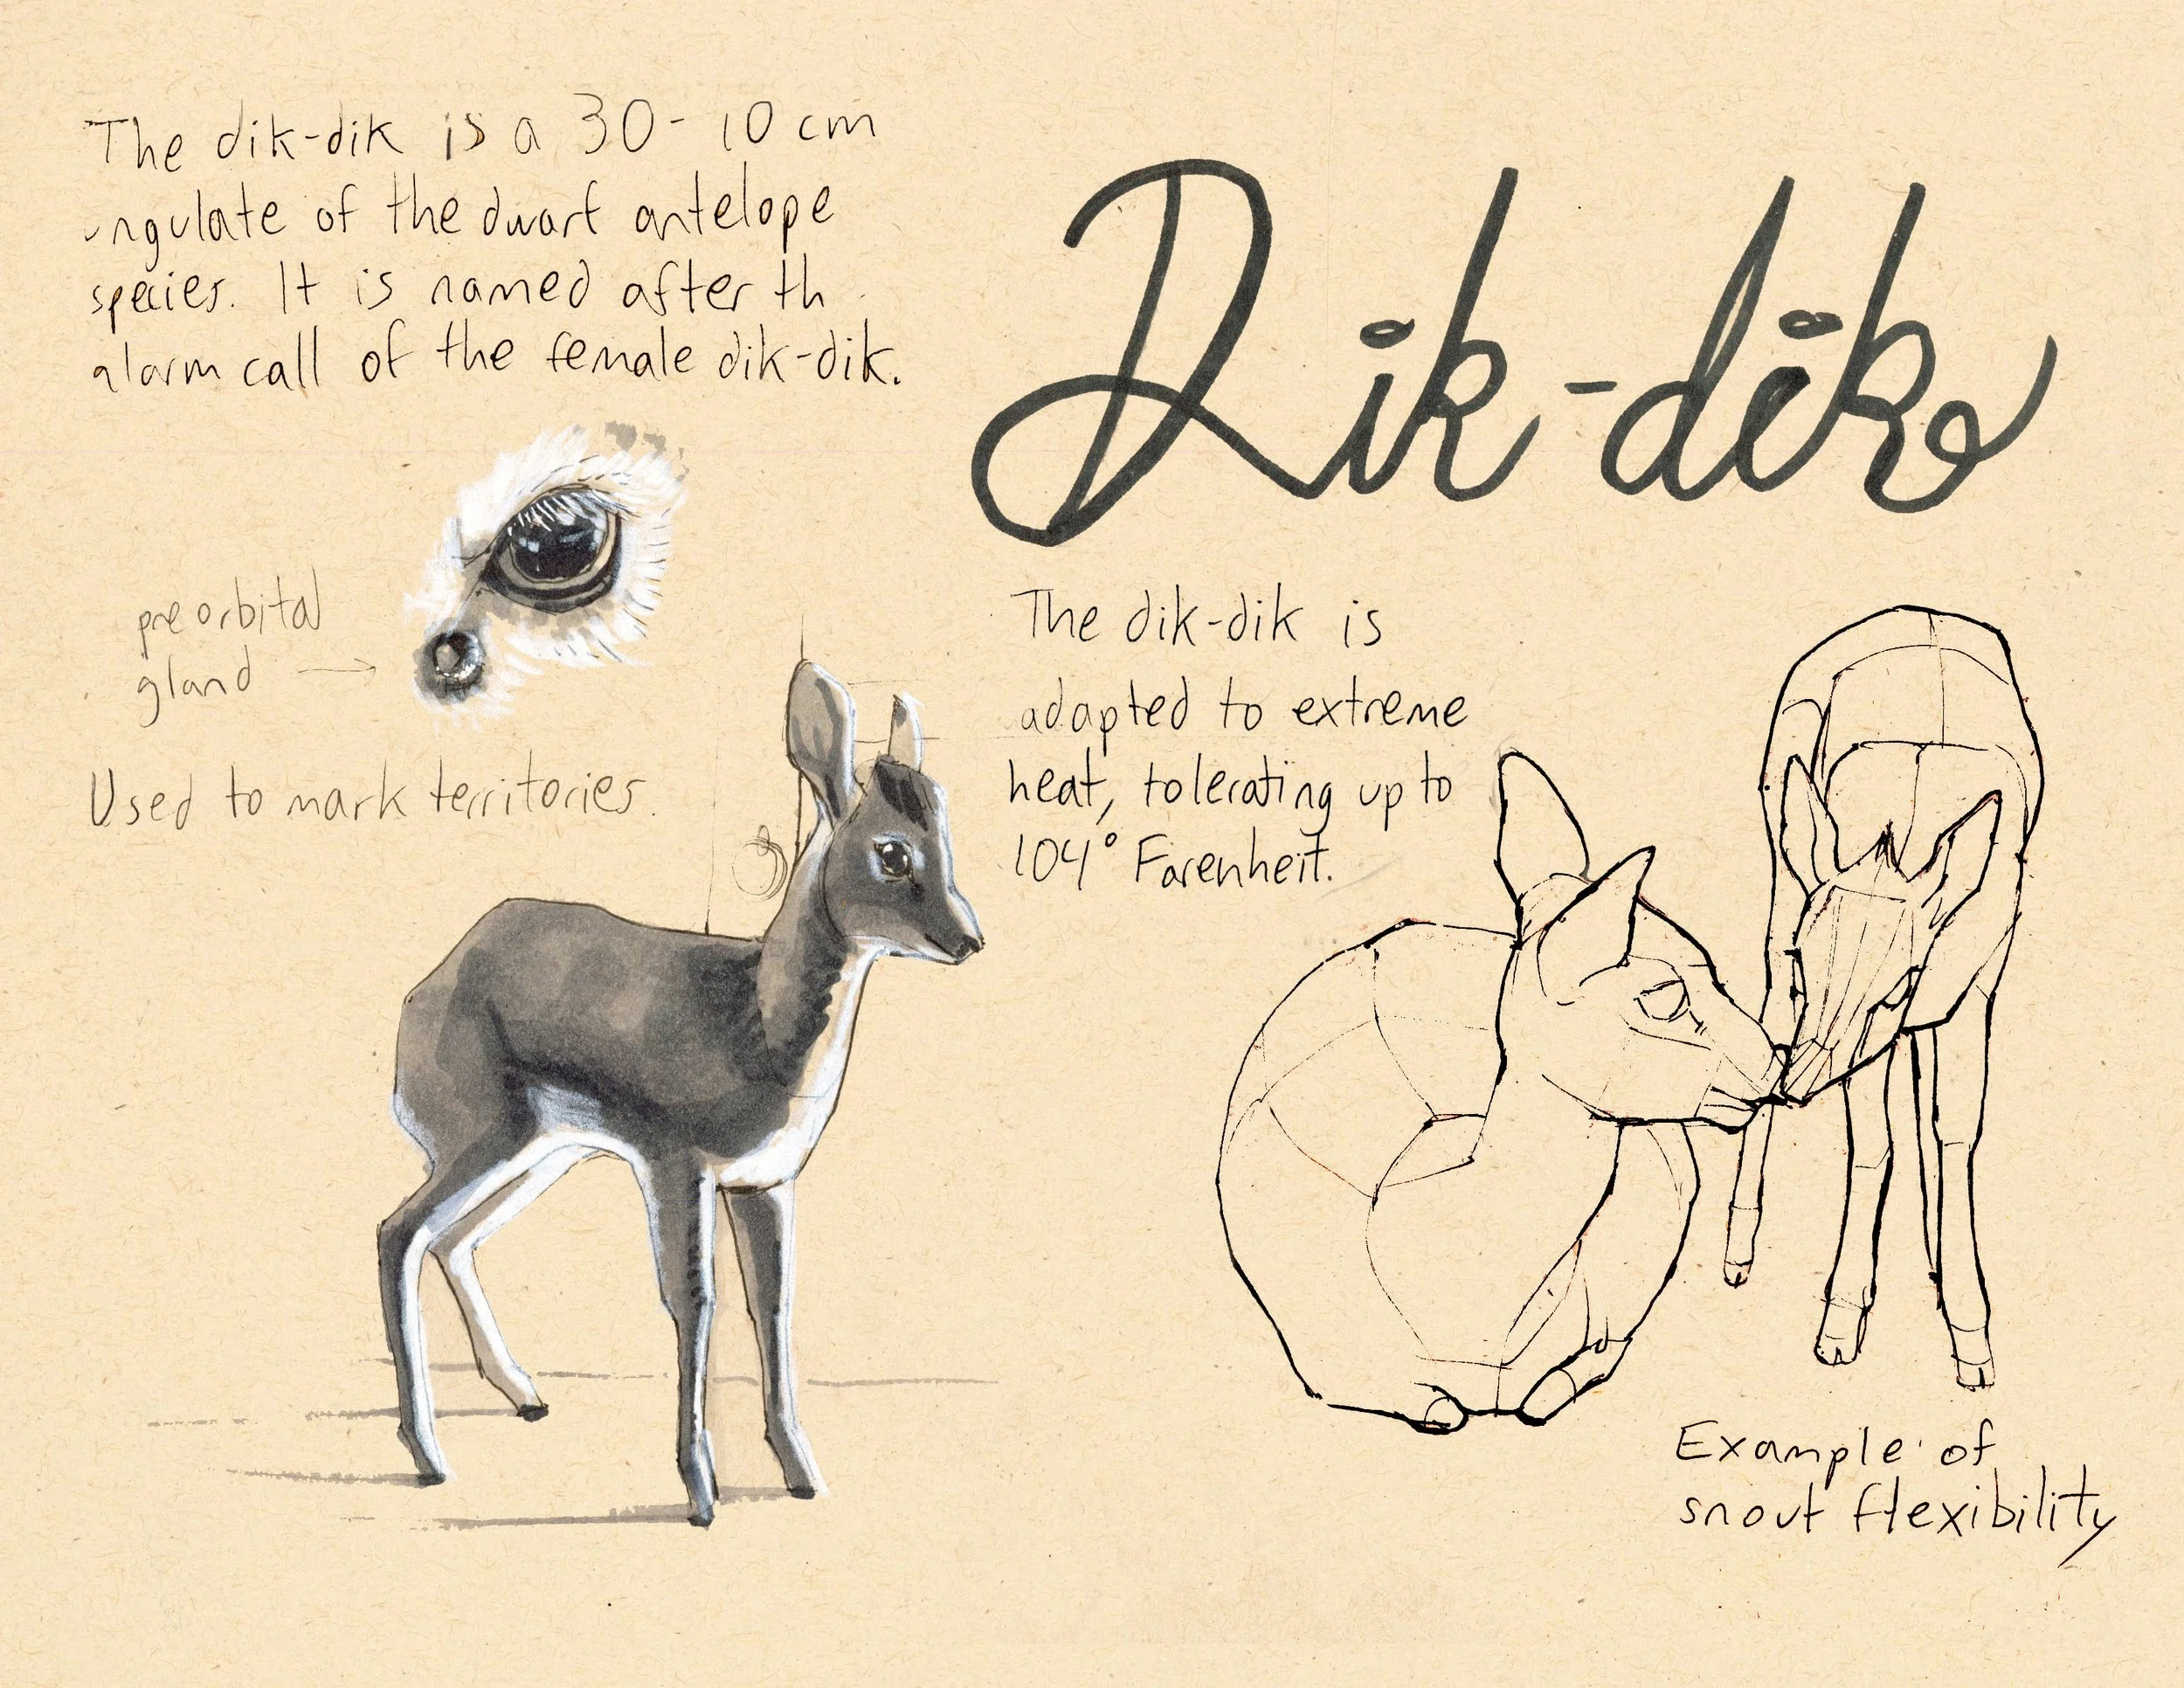 The dik-dik is a 30- 10 cm
ungulate of the dwarf antelope
species. It is named after th
alarm call of the female dik-dik.
Dik-dik
preorbital
gland →
Used to mark territories.
The dik-dik is
adapted to extreme
heat, tolerating up to
104° Farenheit.
Example of
snout flexibility